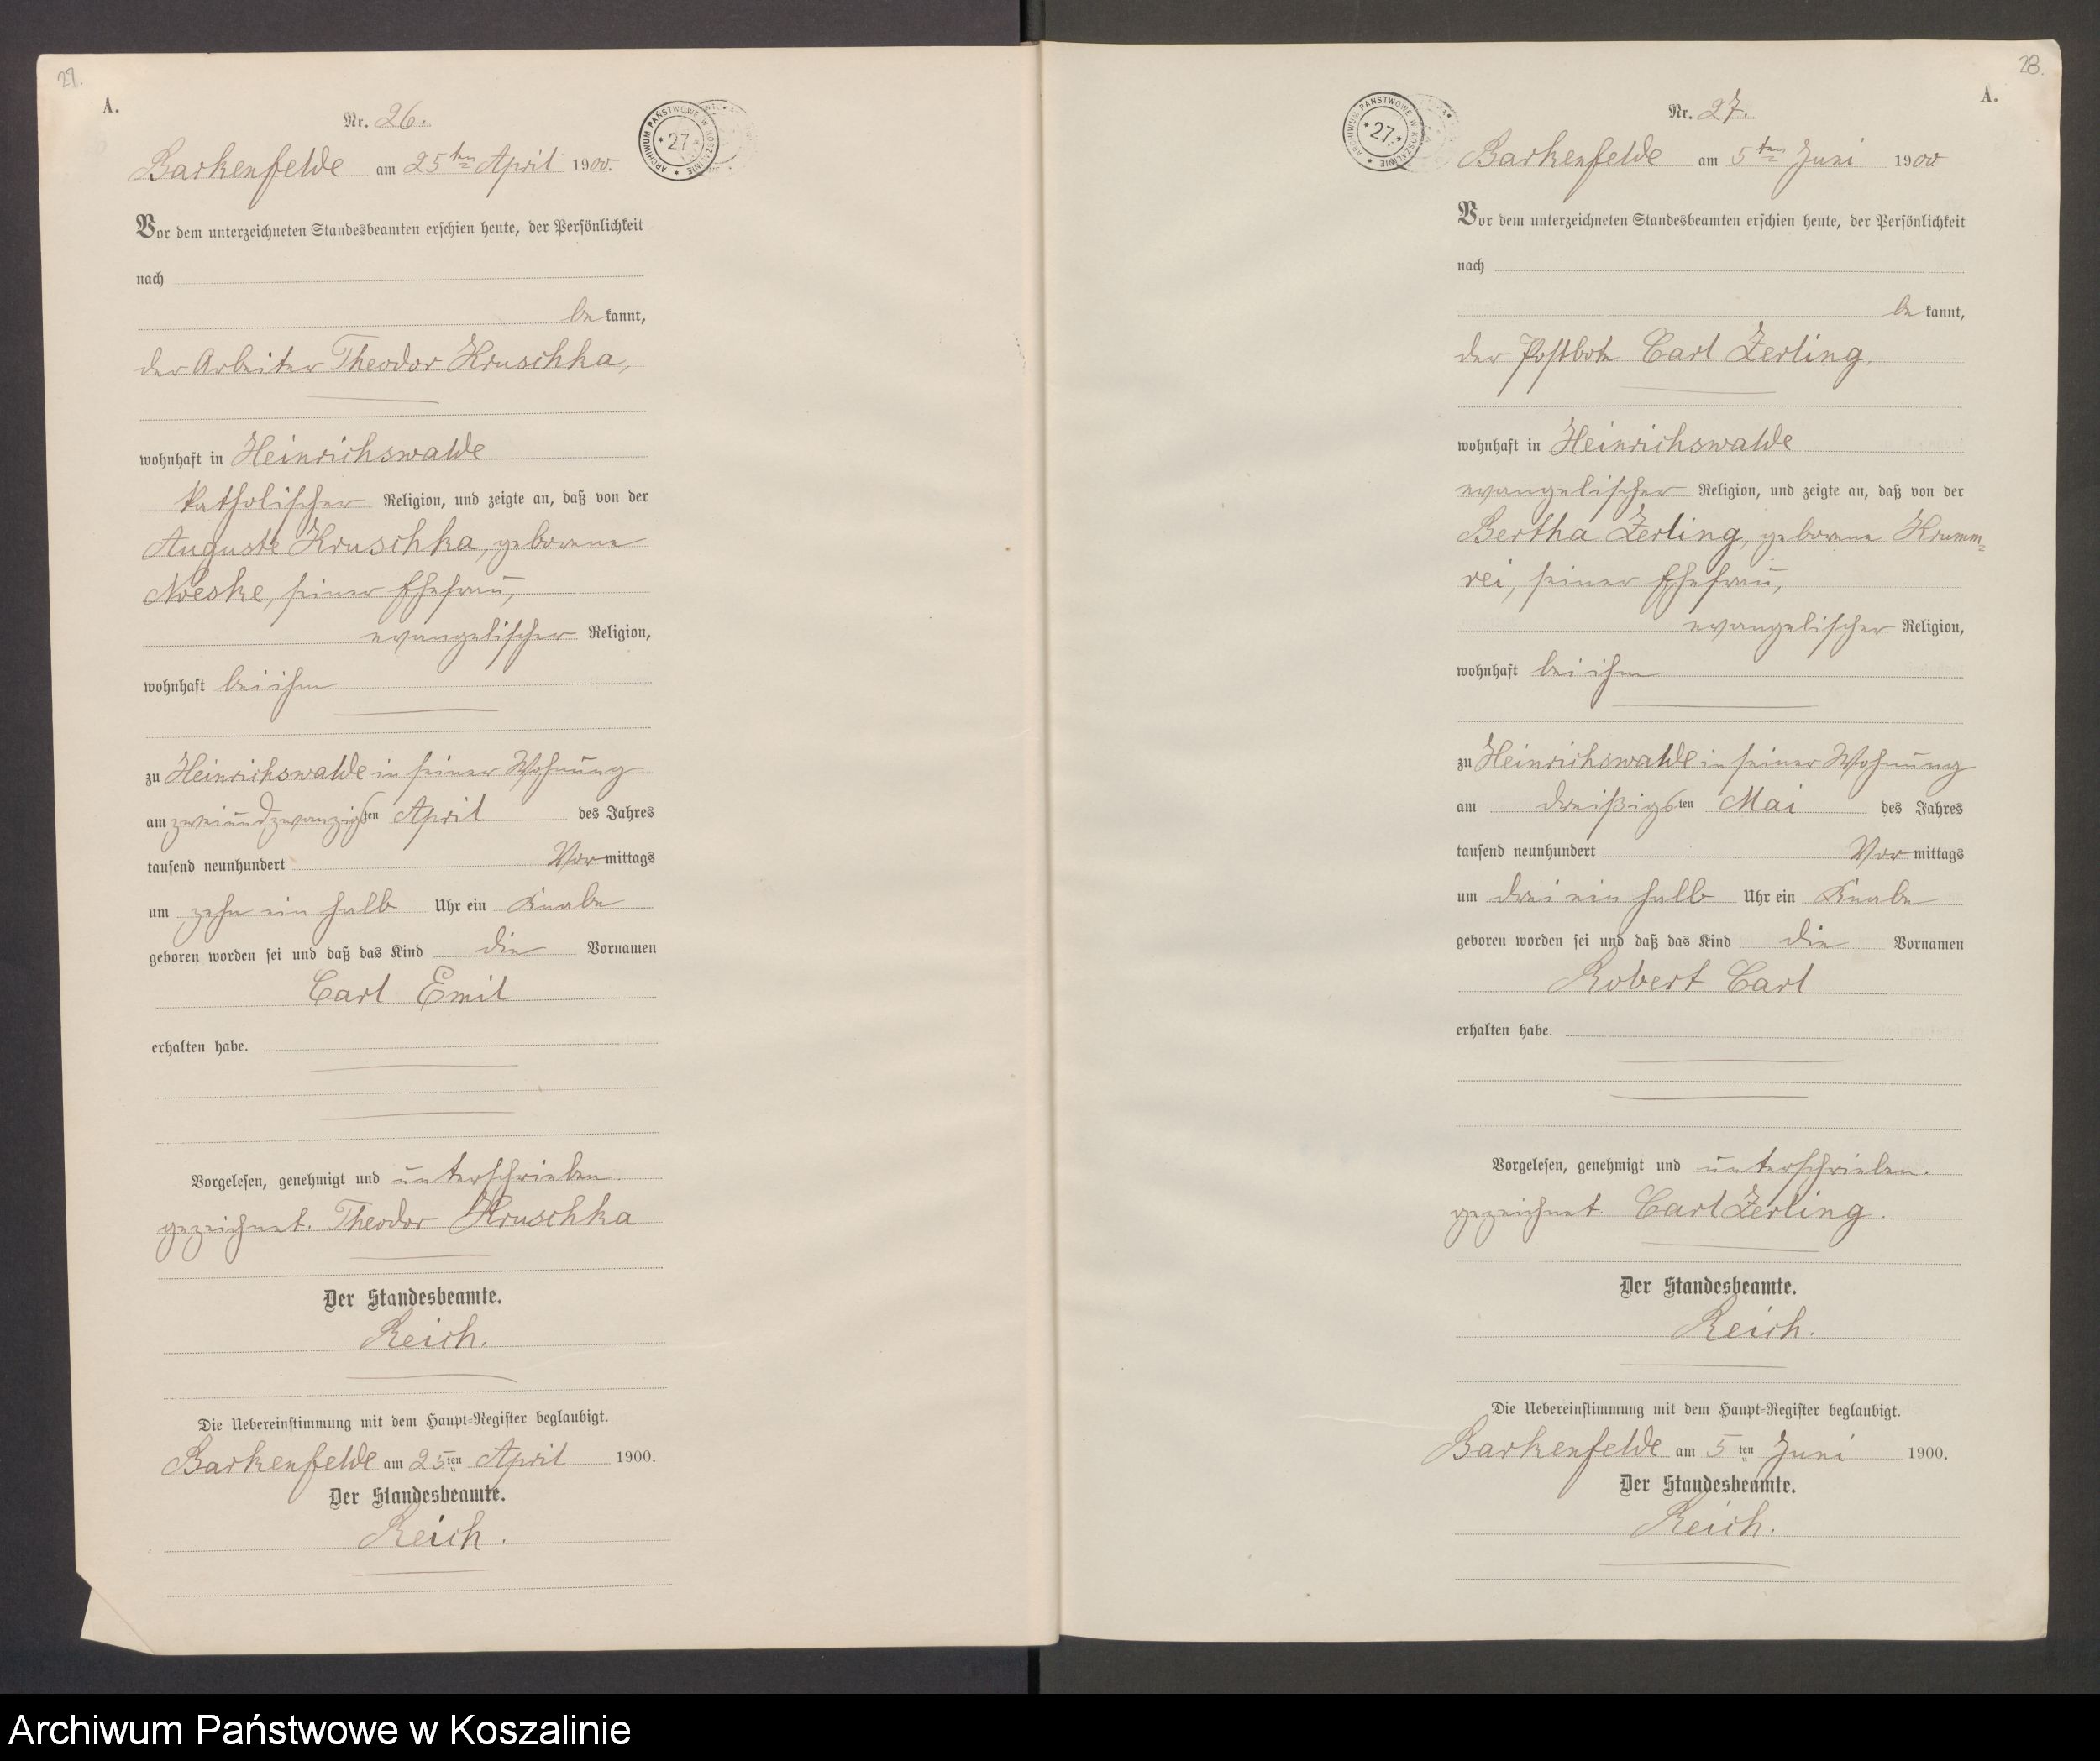 29.
A.
Nr. 26.
ARCHIWUM PAŃSTWOWE W KOSZALINIE
* 27 *
Barkenfelde am 25ten April 1900.
Vor dem unterzeichneten Standesbeamten erschien heute, der Persönlichkeit
nach
bekannt,
der Arbeiter Theodor Kruschka,
wohnhaft in Heinrichswalde
katholischer Religion, und zeigte an, daß von der
Auguste Kruschka, geborene
Noeske, seiner Ehefrau,
evangelischer Religion,
wohnhaft bei ihm
zu Heinrichswalde in seiner Wohnung
am zweiundzwanzigsten April des Jahres
tausend neunhundert Vormittags
um zehn ein halb Uhr ein Knabe
geboren worden sei und daß das Kind die Vornamen
Carl Emil
erhalten habe.
Vorgelesen, genehmigt und unterschrieben.
gezeichnet. Theodor Kruschka
Der Standesbeamte.
Reich.
Die Uebereinstimmung mit dem Haupt-Register beglaubigt.
Barkenfelde am 25ten April 1900.
Der Standesbeamte.
Reich.
28.
A.
Nr. 27.
ARCHIWUM PAŃSTWOWE W KOSZALINIE
* 27 *
Barkenfelde am 5ten Juni 1900
Vor dem unterzeichneten Standesbeamten erschien heute, der Persönlichkeit
nach
bekannt,
der Postbote Carl Zerling,
wohnhaft in Heinrichswalde
evangelischer Religion, und zeigte an, daß von der
Bertha Zerling, geborene Krumm=
rei, seiner Ehefrau,
evangelischer Religion,
wohnhaft bei ihm
zu Heinrichswalde in seiner Wohnung
am dreißigsten Mai des Jahres
tausend neunhundert Vormittags
um drei ein halb Uhr ein Knabe
geboren worden sei und daß das Kind die Vornamen
Robert Carl
erhalten habe.
Vorgelesen, genehmigt und unterschrieben.
gezeichnet. Carl Zerling.
Der Standesbeamte.
Reich.
Die Uebereinstimmung mit dem Haupt-Register beglaubigt.
Barkenfelde am 5ten Juni 1900.
Der Standesbeamte.
Reich.
Archiwum Państwowe w Koszalinie